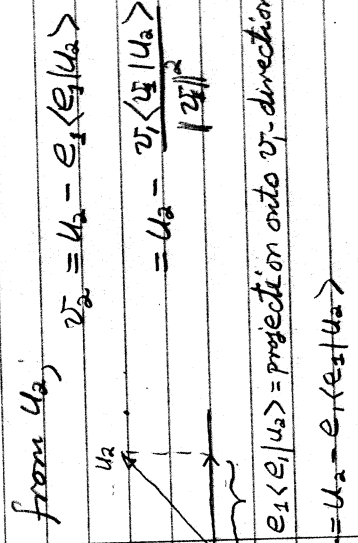 from u₂,
v₂ = u₂ - e₁<e₁|u₂>
= u₂ - v₁<v₁|u₂> / ||v₁||²
u₂
e₁<e₁|u₂> = projection onto v₁-direction
= u₂ - e₁<e₁|u₂>